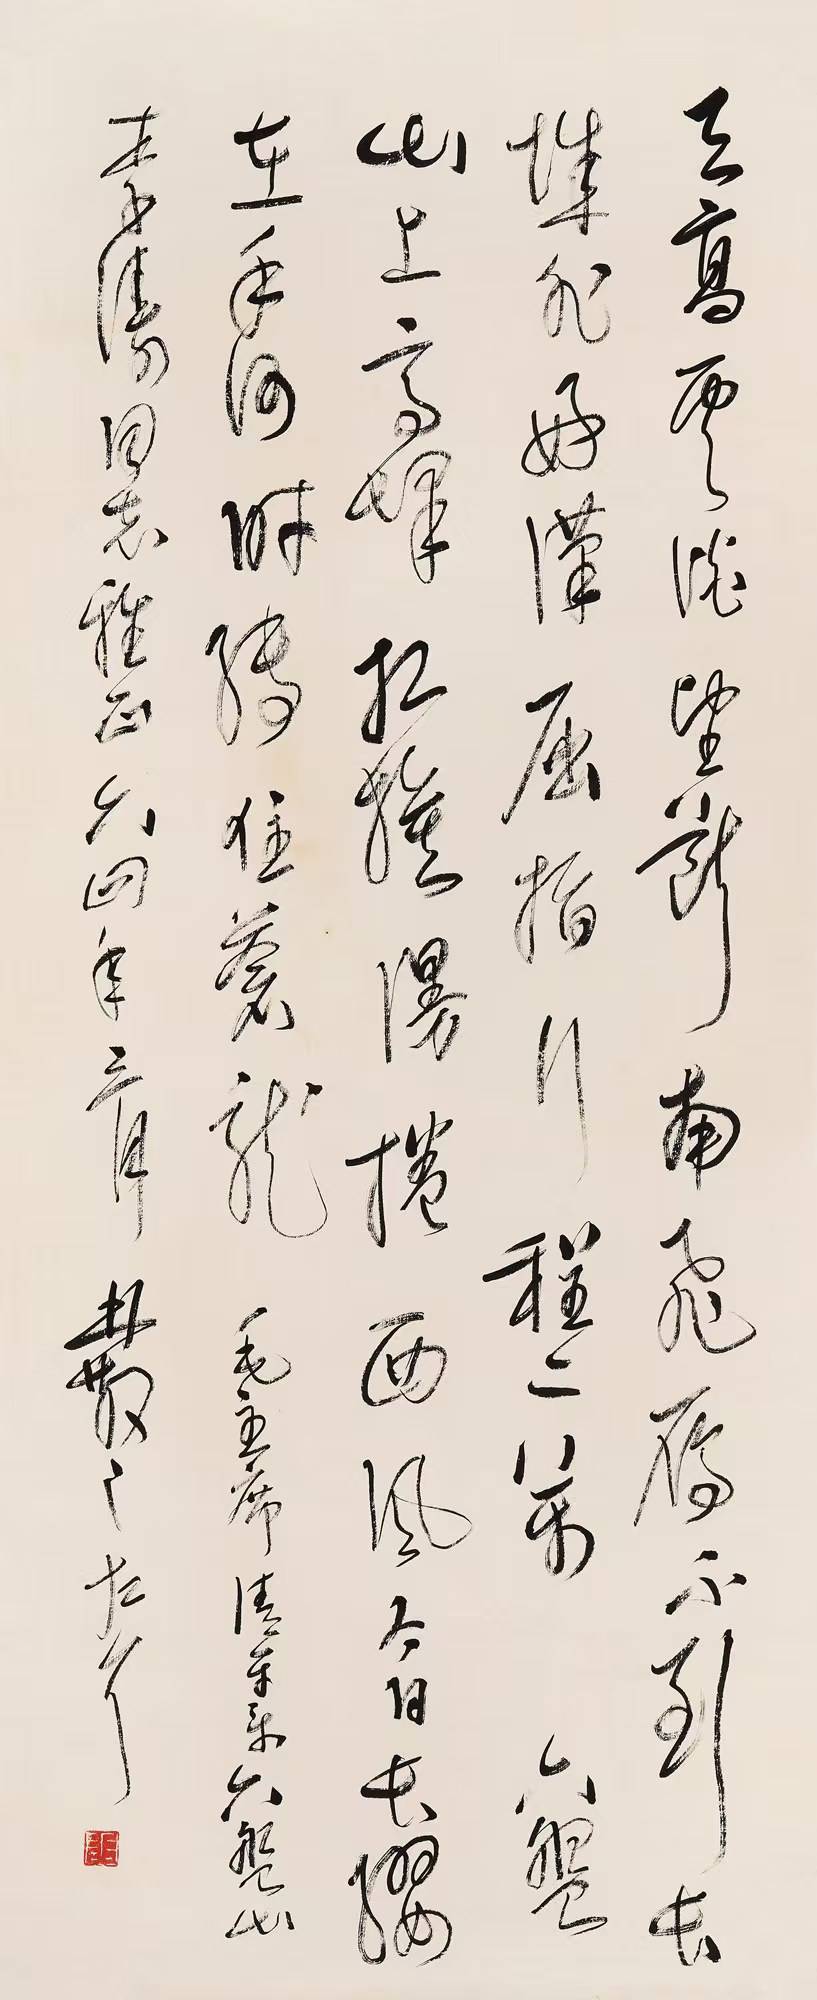 天高雲淡望斷南飛雁不到長
城非好漢屈指行程二萬六盤
山上高峰紅旗漫捲西風今日長纓
在手何時縛住蒼龍毛主席清平樂六盤山
濤同志雅正六四年三月散之左耳